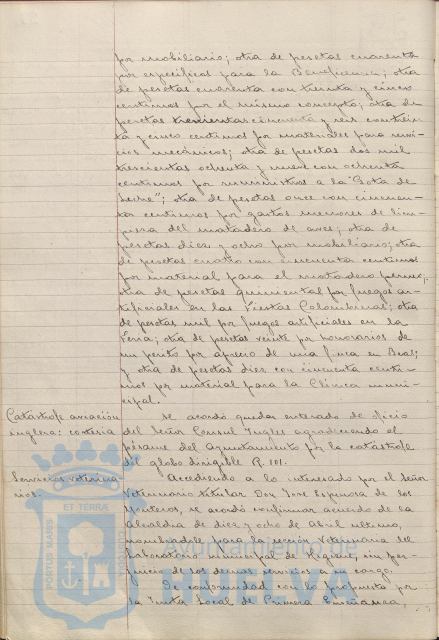 por mobiliario; otra de pesetas cuarenta
por específicos para la Beneficencia; otra
de pesetas cuarenta con treinta y cinco
centimos por el mismo concepto; otra de
pesetas trescientas cincuenta y seis con trein-
ta y cinco centimos por materiales para servi-
cios mecánicos; otra de pesetas dos mil
trescientas ochenta y nueve con ochenta
centimos por suministros a la "Gota de
Leche"; otra de pesetas once con cincuen-
ta centimos por gastos menores de lim-
pieza del matadero de aves; otra de
pesetas diez y ocho por mobiliario; otra
de pesetas cuatro con cincuenta centimos
por material para el matadero
otra de pesetas quinientas por fuegos ar-
tificiales en las Fiestas Colombinas; otra
de pesetas mil por fuegos artificiales en la
Feria; otra de pesetas veinte por honorarios de
un perito por aprecio de una finca en
y otra de pesetas diez con cincuenta centi-
mos por material para la Clínica muni-
cipal.
Catástrofe aviación
inglesa: cortesía
Se acordó quedar enterado de oficio
del Señor Consul Ingles agradeciendo el
pésame del Ayuntamiento por la catástrofe
del globo dirigible R. 101.
Servicios veterina-
rios.
Accediendo a lo interesado por el Señor
Veterinario titular Don Jose Espinosa de los
Monteros, se acordó confirmar acuerdo de la
alcaldia de diez y ocho de abril ultimo,
nombrandole para la sección veterinaria del
Laboratorio Municipal de Higiene, sin per-
juicio de los demas servicios a su cargo.
De conformidad con lo propuesto por
la Junta Local de Primera Enseñanza,
ET TERRÆ
PORTUS MARIS
CUSTODIA
HUELVA